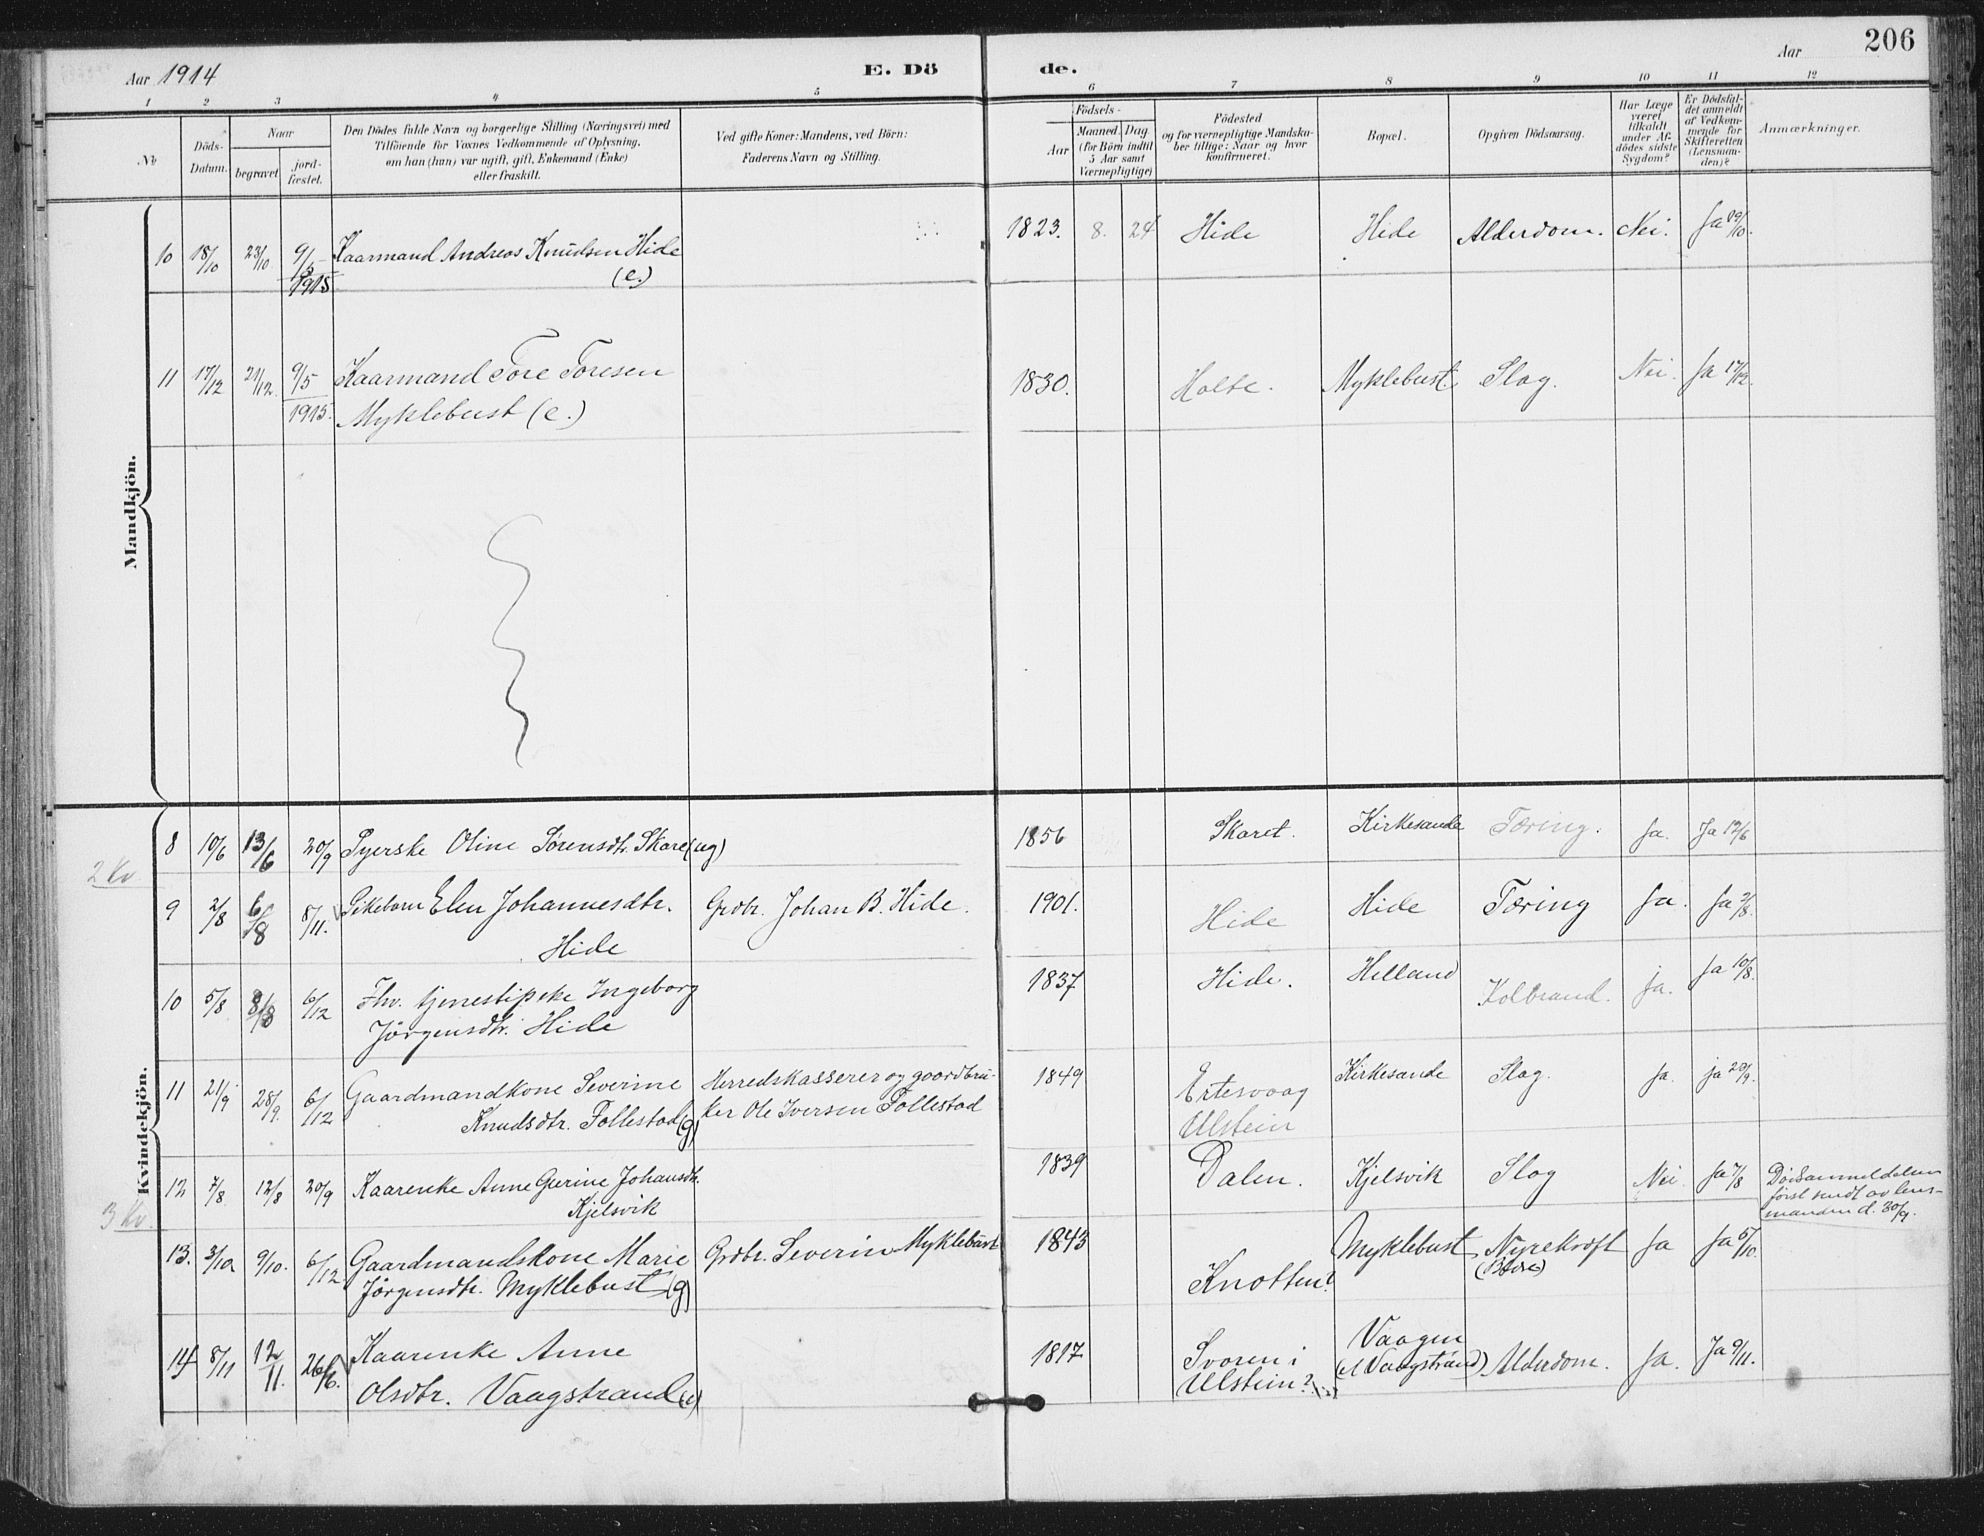 Aar 1914
E. Dö
de.
Aar
206
1 2 3 4 5 6 7 8 9 10 11 12
No
Döds-
Datum.
Naar
begravet
jord-
fæstet.
Den Dödes fulde Navn og borgerlige Stilling (Næringsvei) med
Tilföiende for Voxnes Vedkommende af Oplysning,
om han (hun) var ugift, gift, Enkemand (Enke)
eller fraskilt.
Ved gifte Koner: Mandens, ved Börn:
Faderens Navn og Stilling.
Födsels-
Aar
Maaned. Dag
(for Börn indtil
5 Aar samt
Værnepligtige)
Födested
og for værnepligtige Mandska-
ber tillige: Naar og hvor
konfirmeret.
Bopæl.
Opgiven Dödsaarsag.
Har Læge
været
tilkaldt
under Af-
dödes sidste
Sygdom?
Er Dödsfal-
det anmeldt
af Vedkom-
mende for
Skifteretten
(Lensman-
den)?
Anmærkninger.
Mandkjön.
10 18/10 23/10 9/5 1915 Kaarmand Andreas Knudsen Hide
(e.)
1823. 8. 24 Hide Hide Alderdom. Nei. Ja 19/10.
11 17/12 21/12. 9/5 1915. Kaarmand Tore Toresen
Myklebust (e.)
1830. Holte. Myklebust Slag. Nei. Ja 17/12.
Kvindekjön.
2 Kv
8 10/6 13/6 20/9 Syerske Oline Sørensdtr. Skare (ug)
1856 Skaret. Kirkesande Tæring. Ja. Ja 12/6
9 2/8 6/8 8/11. Pikebarn Elen Johannesdtr.
Hide
Grdbr. Johan B. Hide.
1901. Hide Hide Tæring Ja. Ja 3/8.
10 5/8 8/8 6/12 Fhv. tjenestipike Ingeborg
Jørgensdtr. Hide
1837 Hide. Helland Kolbrand. Ja. Ja 10/8.
11 21/9 28/9. 6/12 Gaardmandkone Severine
Knudsdtr. Follestad (g)
Herredskasserer og gaardbru-
ker Ole Iversen Follestad
1849 Eitesvaag
Ulstein
Kirkesande Slag. Ja. ja 20/9.
3 Kv.
12 7/8 12/8 20/9 Kaarenke Anne Gurine Johansdtr.
Kjelsvik
1839 Dalen. Kjelsvik Slag Nei. Ja 7/8
Dødsanmeldelsen
først sendt av lens-
manden d. 30/9.
13. 3/10 9/10. 6/12 Gaardmandskone Marie
Jørgensdtr. Myklebust (g)
Grdbr. Severin Myklebust
1843 Knotten? Myklebust Nyrekræft Ja Ja 5/10.
14 8/11 12/11. 26/6. Kaarenke Anne
Olsdtr. Vaagstrand (e)
1817 Svoren i
Ulstein?
Vaagen
(Vaagstrand) Alderdom. Ja. Ja 9/11.